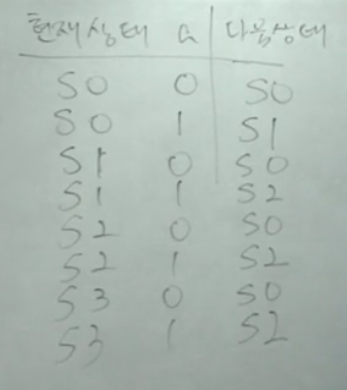 현재상태 a 다음상태
S0 0 S0
S0 1 S1
S1 0 S0
S1 1 S2
S2 0 S0
S2 1 S2
S3 0 S0
S3 1 S2